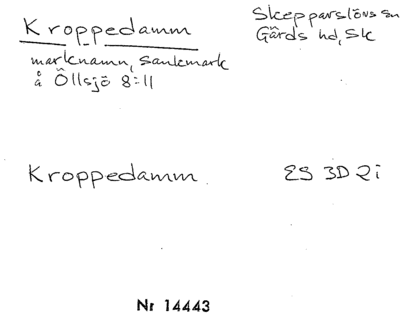 Kroppedamm
Skepparslövs sn
Gärds hd, Sk
marknamn, sankmark
å Öllsjö 8:11
Kroppedamm
ES 3D 2i
Nr 14443